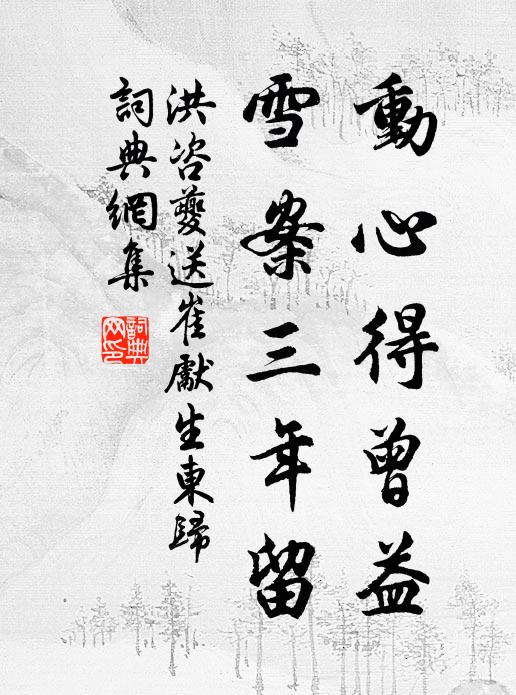 動心得曾益
雪案三年留
洪咨夔送崔獻生東歸
詞典網集
詞典
网印